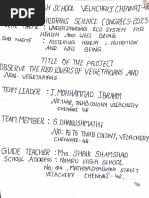 H SCHOOL VELACHERY CHENNAI-4
CHILDRENS SCIENCE CONGRESS-2023
THEME : UNDERSTANDING ECO SYSTEM FOR
HEALTH AND WELL BEING
SUB THEME : FOSTERING HEALTH, NUTRITION
AND WELL BEING
TITLE OF THE PROJECT
OBSERVE THE FOOD LOVERS OF VEGETARIANS AND
NON VEGETARIANS
TEAM LEADER : I. MOHAMMAD IBRAHIM
COLONY VELACHERY
CHENNAI-42
TEAM MEMBER : B. DHANUSHMATHI
COLONY, VELACHERY
CHENNAI-42.
GUIDE TEACHER : MRS. SHAIK SHAMSHAD
SCHOOL ADDRESS : NEHRU HIGH SCHOOL
STREET
VELACHERY CHENNAI - 42.